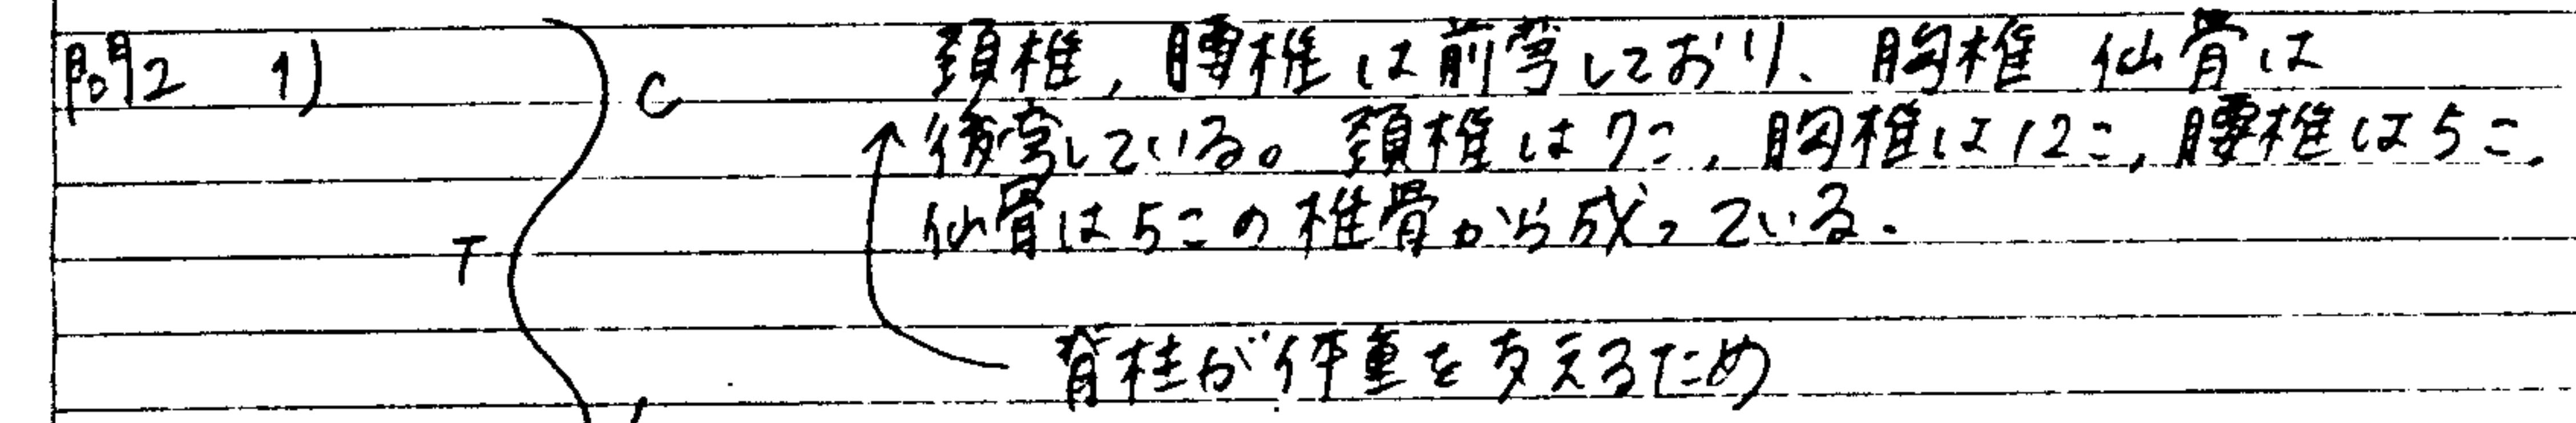 問2 1) C 頚椎,腰椎は前弯しており、胸椎 仙骨は
後弯している。頚椎は7こ,胸椎は12こ,腰椎は5こ,
仙骨は5この椎骨から成っている.
T
脊柱が体重を支えるため